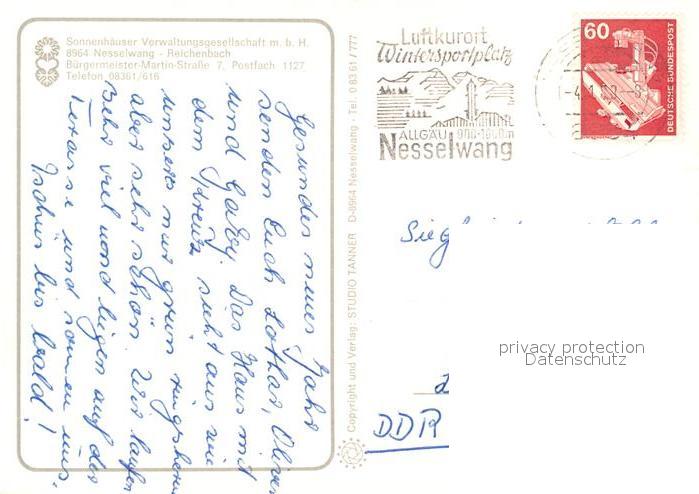 Sonnenhäuser Verwaltungsgesellschaft m. b. H.
8964 Nesselwang - Reichenbach
Bürgermeister-Martin-Straße 7, Postfach 1127
Telefon 08361/616
Gesundes neues Jahr
senden Euch Lothar, Oliver
und Gaby. Das Haus mit
dem Kreuz sieht aus wie
unseres nur grün ringsherum
aber sehr schön. Wir laufen
sehr viel und liegen auf der
Terasse und sonnen uns.
Tschüs bis bald!
Copyright und Verlag: STUDIO TANNER D-8964 Nesselwang - Tel. 0 83 61 / 777
Luftkurort
Wintersportplatz
ALLGÄU 900-1600m
Nesselwang
60
DEUTSCHE BUNDESPOST
Sieg
DDR
privacy protection
Datenschutz